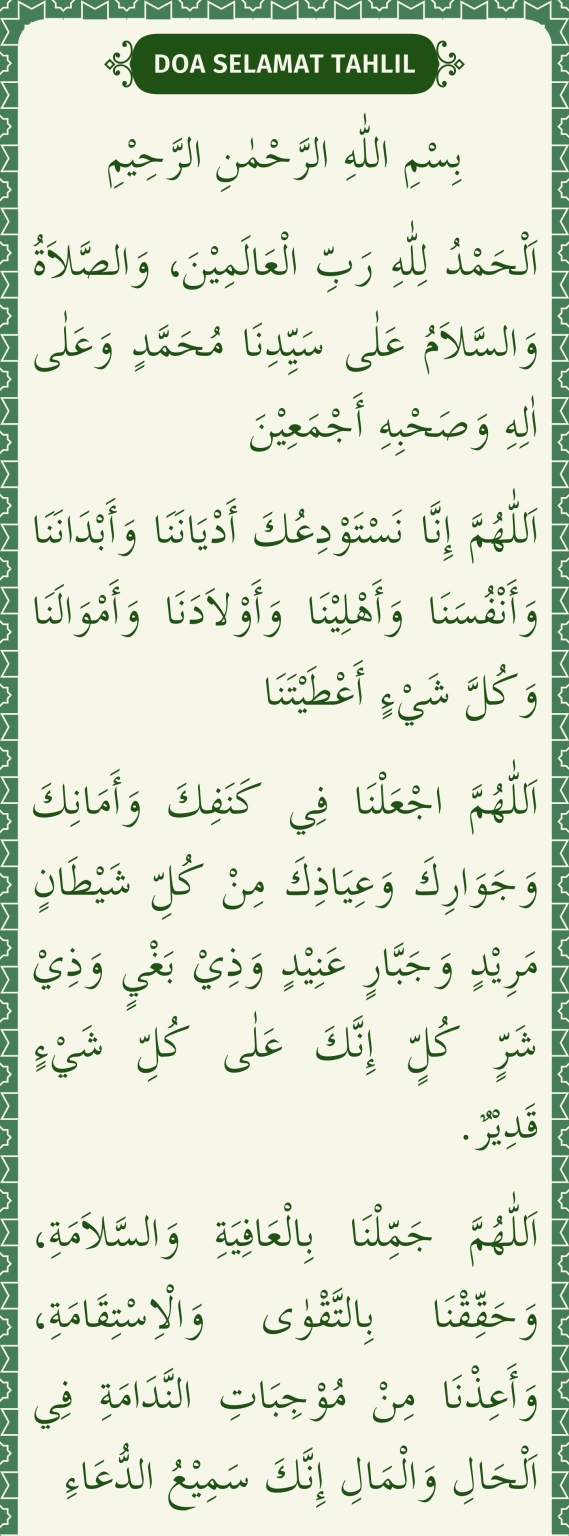 DOA SELAMAT TAHLIL
بِسْمِ اللّٰهِ الرَّحْمٰنِ الرَّحِيْمِ
اَلْحَمْدُ لِلّٰهِ رَبِّ الْعَالَمِيْنَ، وَالصَّلاَةُ
وَالسَّلاَمُ عَلٰى سَيِّدِنَا مُحَمَّدٍ وَعَلٰى
اٰلِهِ وَصَحْبِهِ أَجْمَعِيْنَ
اَللّٰهُمَّ إِنَّا نَسْتَوْدِعُكَ أَدْيَانَنَا وَأَبْدَانَنَا
وَأَنْفُسَنَا وَأَهْلِيْنَا وَأَوْلاَدَنَا وَأَمْوَالَنَا
وَكُلَّ شَيْءٍ أَعْطَيْتَنَا
اَللّٰهُمَّ اجْعَلْنَا فِي كَنَفِكَ وَأَمَانِكَ
وَجَوَارِكَ وَعِيَاذِكَ مِنْ كُلِّ شَيْطَانٍ
مَرِيْدٍ وَجَبَّارٍ عَنِيْدٍ وَذِيْ بَغْيٍ وَذِيْ
شَرٍّ كُلٍّ إِنَّكَ عَلٰى كُلِّ شَيْءٍ
قَدِيْرٌ.
اَللّٰهُمَّ جَمِّلْنَا بِالْعَافِيَةِ وَالسَّلاَمَةِ،
وَحَقِّقْنَا بِالتَّقْوٰى وَالْاِسْتِقَامَةِ،
وَأَعِذْنَا مِنْ مُوْجِبَاتِ النَّدَامَةِ فِي
اَلْحَالِ وَالْمَالِ إِنَّكَ سَمِيْعُ الدُّعَاءِ